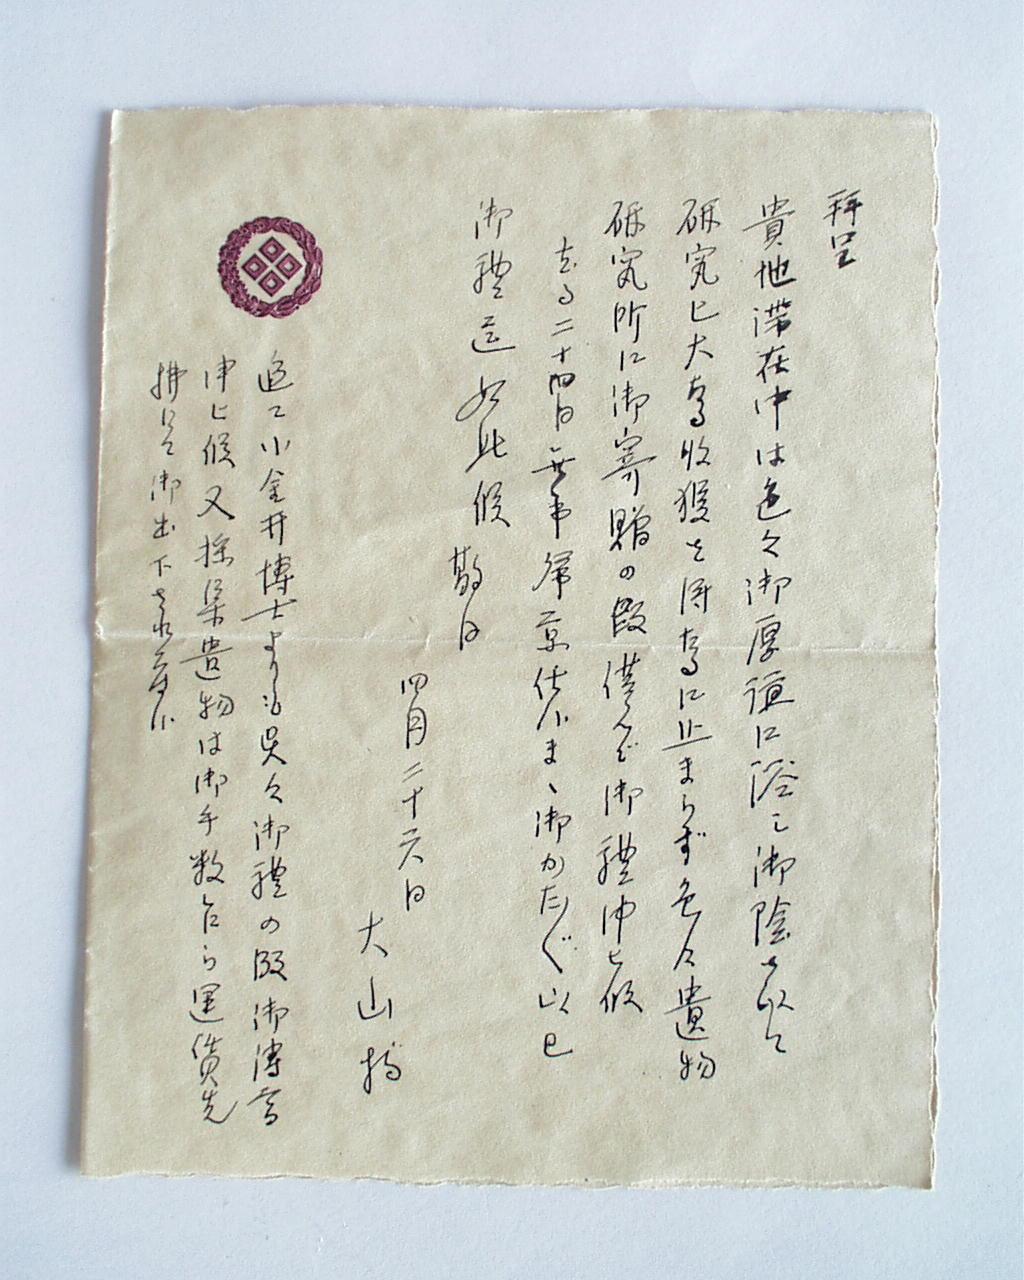 拝呈
貴地滞在中は色々御厚誼に浴し御陰を以て
研究上大なる收獲を得たるに止まらず色々遺物
研究所に御寄贈の段謹んで御禮申上候
去る二十四日無事帰京仕候まゝ御かた〴〵以上
御禮迄如此候 敬白
四月二十六日
大山柏
追て小金井博士よりも呉々御禮の段御傳言
申上候又採集遺物は御手数乍ら運賃先
拂にて御出下され度候